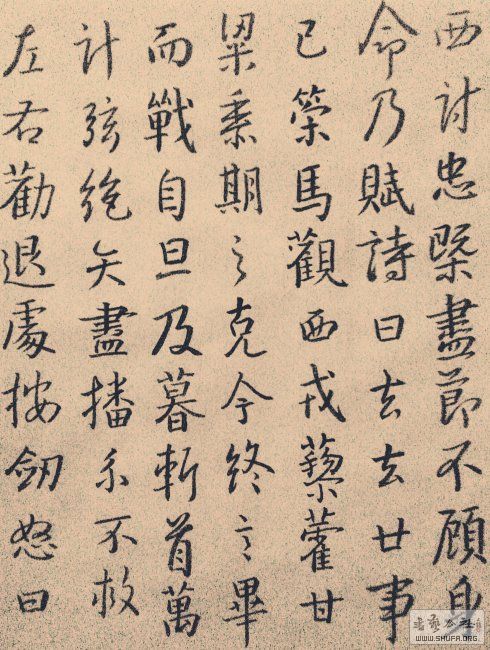 西討忠槩盡節不顧身
命乃賦詩曰去去廿事
已策馬觀西戎藜藿甘
粱黍期之克令終言畢
而戰自旦及暮斬首萬
計弦絕矢盡播系不救
左右勸退處按劒怒曰
書藝公社
WWW.SHUFA.ORG